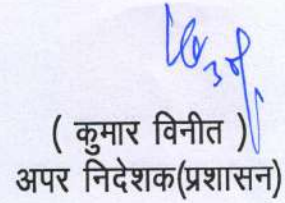 ( कुमार विनीत )
अपर निदेशक(प्रशासन)